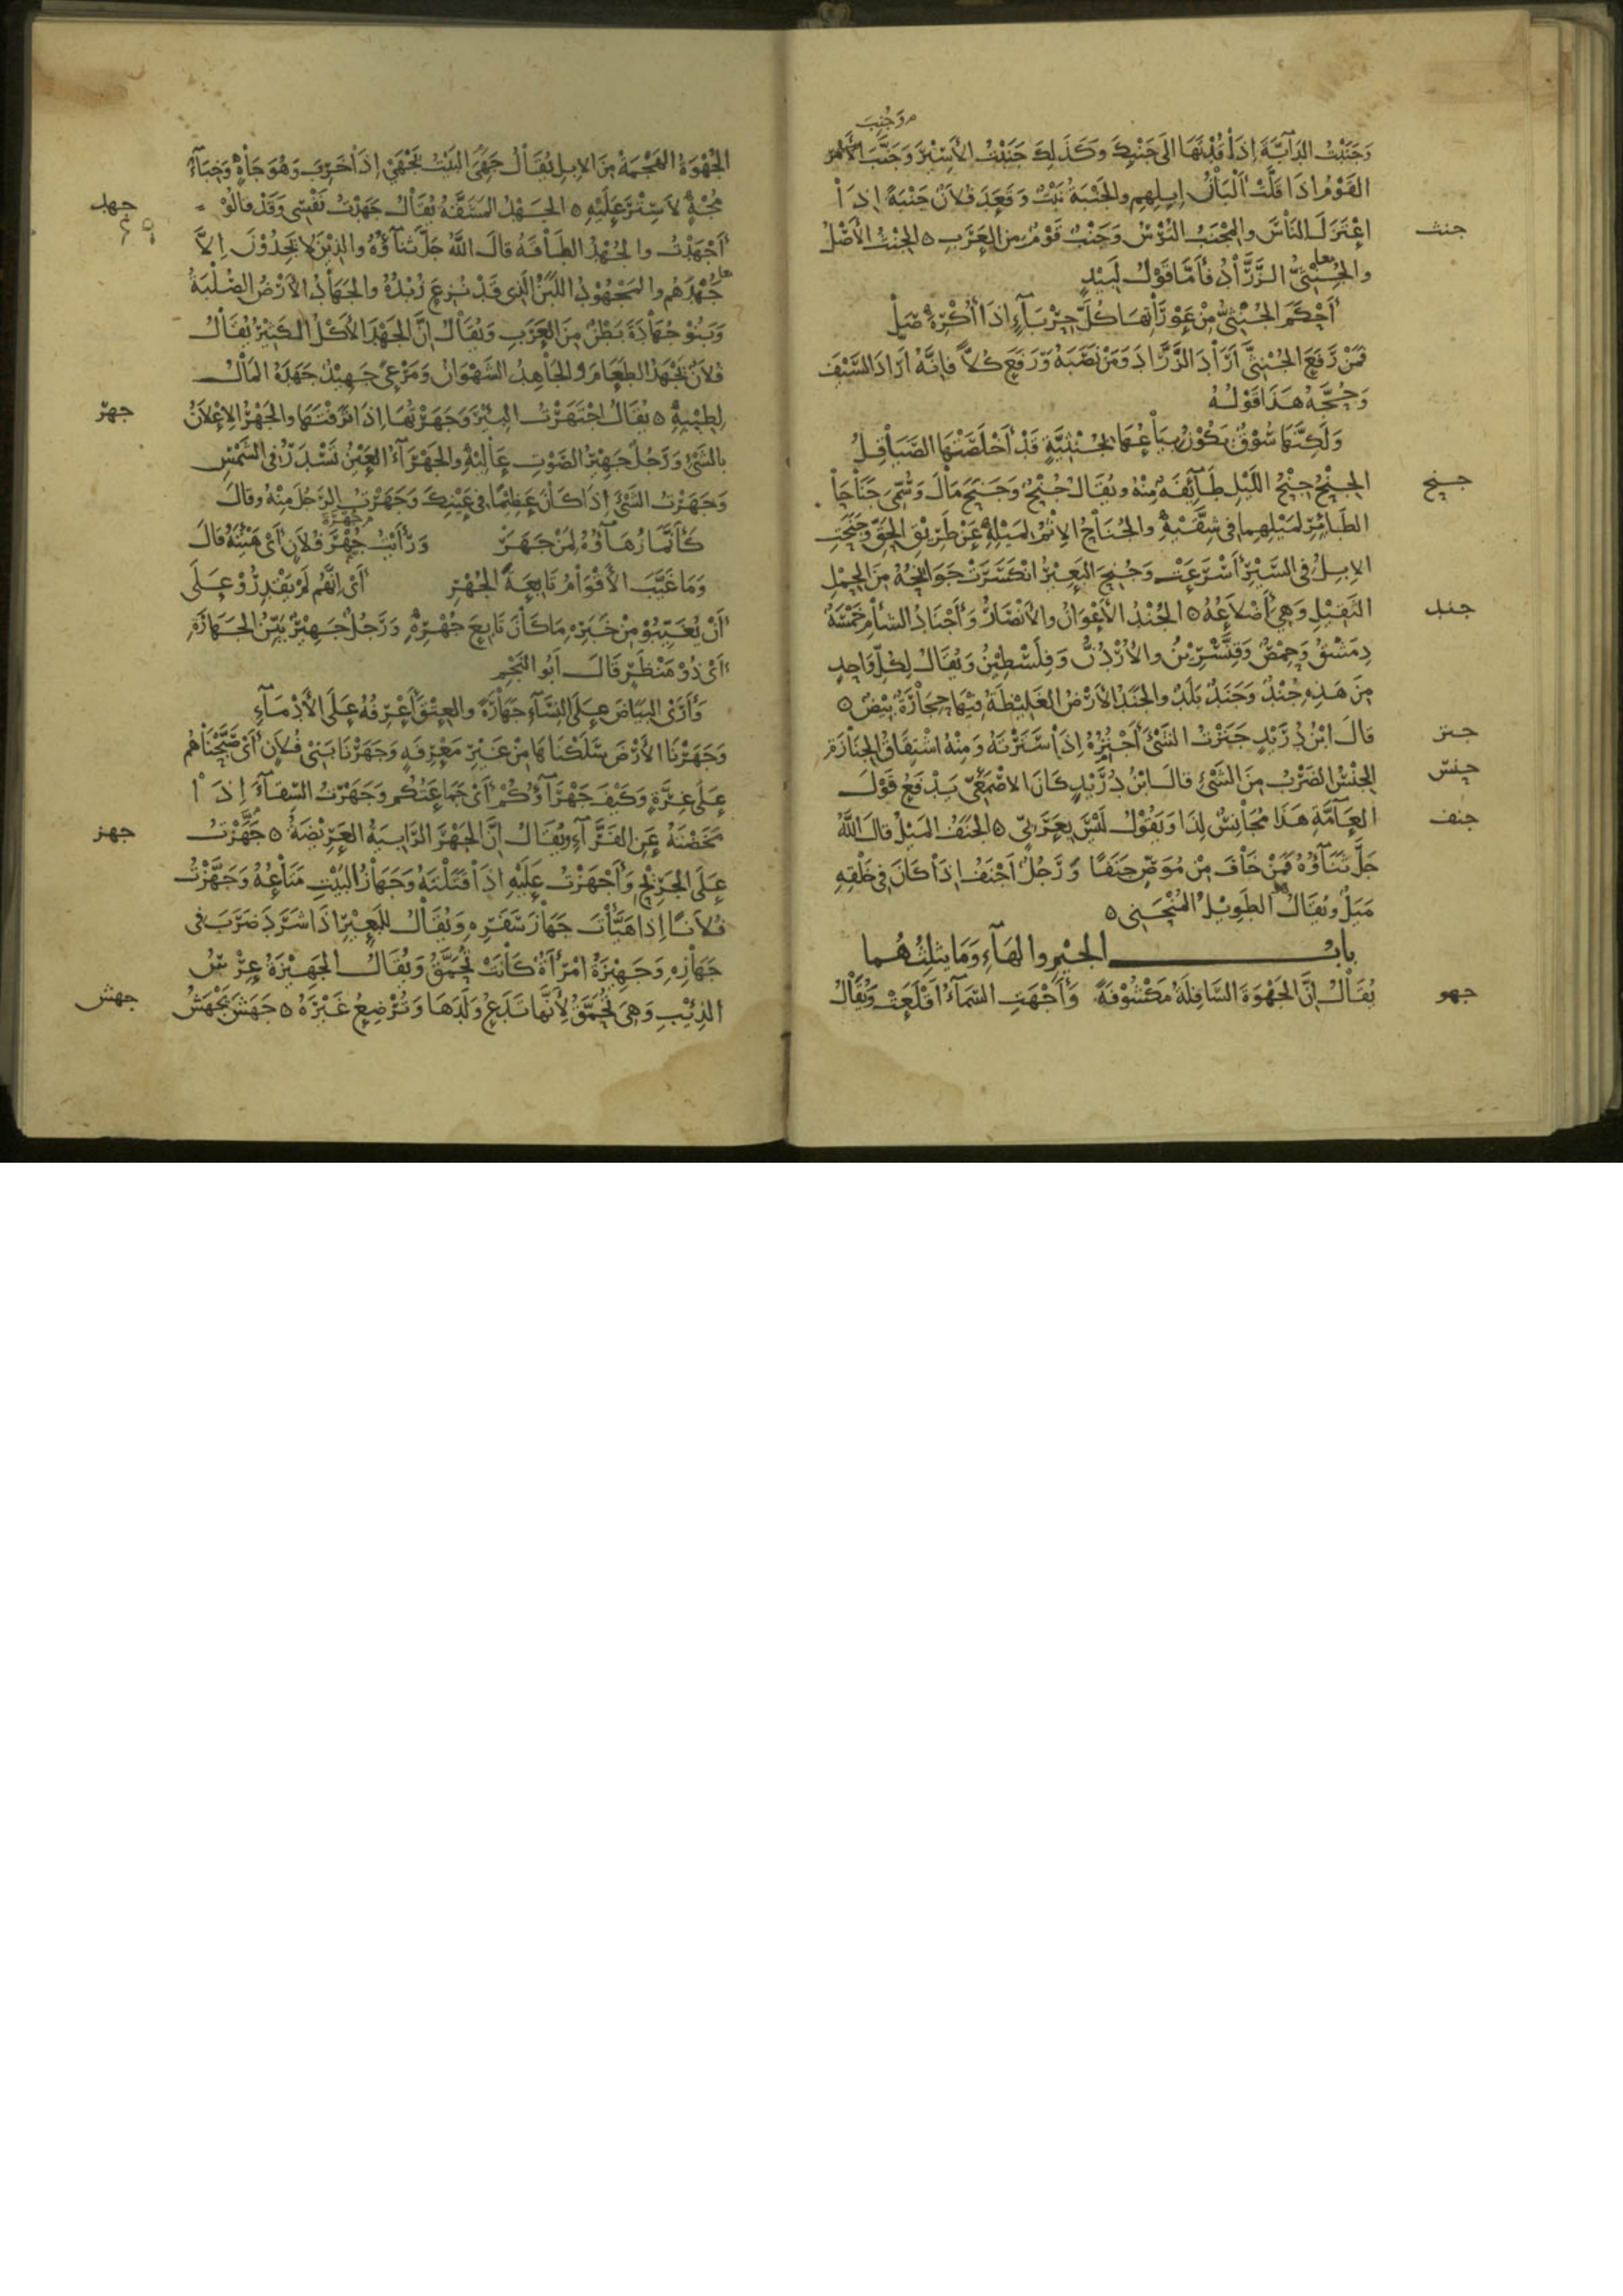 وجنب
وَجَنَبْتُ الدَّابَّةَ إِذَا قُدْتَهَا الَى جَنْبِكَ وكَذَلِكَ جَنَبْتُ الأَسِيْرَ وَجَنَّبَ
القَوْمُ اذَا قَلَّتْ أَلْبَانُ إِبِلِهِم والجَنْبَةُ نَبْتٌ وَقَعَدَ فُلَانٌ جَنْبَةً إِذَا
جنث
اعْتَزَلَ النَّاسَ والمِجْنَبُ التُرْسُ وَجَنْبٌ قَوْمٌ مِنَ العَرَبِ ه الجِنْثُ الأَصْلُ
والجُنْثِيُّ الزَّرَّادُ فَأَمَّا قَوْلُ لَبِيْدٍ
أَحْكَمَ الجُنْثِيُّ مِنْ عَوْرَاتِهَا كُلَّ حِرْبَآءٍ اذَا أُكْرِهَ صَلْ
فَمَنْ رَفَعَ الجُنْثِيَّ أَرَادَ الزَّرَّادَ وَمَنْ نَصَبَهُ وَرَفَعَ كُلًّا فَإِنَّهُ أَرَادَ السَّيْفَ
وَحُجَّةُ هَذَا قَوْلُهُ
وَلَكِنَّهَا سُوْقٌ يَكُوْنُ بِيَاعُهَا بِجُنْثِيَّةٍ قَدْ أَخْلَصَتْهَا الصَّيَاقِلُ
جنح
الجِنْحُ جِنْحُ اللَّيْلِ طَآئِفَةٌ مِنْهُ ويُقَالُ جُنْحٌ وَجَنَحَ مَالَ وَسُمِّيَ جَنَاحَا
الطَّائِرِ لِمَيْلِهِمَا فِي شِقَّيْهِ والجُنَاحُ الإِثْمُ لِمَيْلِهِ عَنْ طَرِيْقِ الحَقِّ وجَنَحَتِ
الإِبِلُ فِي السَّيْرِ أَسْرَعَتْ وَجُنِحَ البَعِيْرُ انْكَسَرَتْ جَوَانِحُهُ مِنَ الحِمْلِ
جند
الثَّقِيْلِ وَهِيَ أَضْلَاعُهُ ه الجُنْدُ الأَعْوَانُ والأَنْصَارُ وَأَجْنَادُ الشَّأْمِ خَمْسَةٌ
دِمَشْقُ وَحِمْصُ وَقِنَّسْرِيْنُ والأُرْدُنُّ وَفِلَسْطِيْنُ وَيُقَالُ لِكُلِّ وَاحِدٍ
مِنَ هَذِهِ جُنْدٌ وَجَنَدٌ بَلَدٌ والجَنَدُ الأَرْضُ الغَلِيْظَةُ فِيْهَا حِجَارَةٌ بِيْضٌ ه
جنز
قَالَ ابْنُ دُرَيْدٍ جَنَزْتُ الشَّيْءَ أَجْنِزُهُ إِذَا سَتَرْتَهُ وَمِنْهُ اشْتِقَاقُ الجَنَازَةِ
جنس
الجِنْسُ الضَرْبُ مِنَ الشَّيْءِ قَالَ ابْنُ دُرَيْدٍ كَانَ الأَصْمَعِيُّ يَدْفَعُ قَوْلَ
جنف
العَآمَّةِ هَذَا مُجَانِسٌ لِذَا وَيَقُوْلُ لَيْسَ بِعَرَبِيٍّ ه الجَنَفُ المَيْلُ قَالَ اللَّهُ
جَلَّ ثَنَآؤُهُ فَمَنْ خَافَ مِنْ مُوَصٍّ جَنَفًا وَرَجُلٌ أَجْنَفُ إِذَا كَانَ فِي خَلْقِهِ
مَيَلٌ ويُقَالُ الطَوِيْلُ المُنْحَنِي ه
بابُ الجِيْمِ والهَآءِ وَمَا يَثْلِثُهُما
جهو
يُقَالُ إِنَّ الجَهْوَةَ السَّافِلَةُ مَكْشُوْفَةً وَأَجْهَتِ السَّمَآءُ أَقْلَعَتْ وَيُقَالُ
الجُهْوَةُ الهَجْمَةُ مِنَ الإِبِلِ يُقَالُ جَهِيَ البَيْتُ يَجْهَى إِذَا خَرِبَ وَهُوَ جَاهٍ وَخِبَآءٌ
جهد
مُجْهٍ لَا سِتْرَ عَلَيْهِ ه الجَهْدُ المَشَقَّةُ يُقَالُ جَهَدْتُ نَفْسِي وَقَدْ قَالُوْا
أَجْهَدْتُ والجُهْدُ الطَاقَةُ قَالَ اللَّهُ جَلَّ ثَنَآؤُهُ والذِيْنَ لَا يَجِدُوْنَ إِلَّا
جُهْدَهُم والمَجْهُوْدُ اللَّبَنُ الَّذِي قَدْ نُزِعَ زُبْدُهُ والجَهَادُ الأَرْضُ الصُّلْبَةُ
وَبَنُوْ جُهَادَةَ بَطْنٌ مِنَ العَرَبِ وَيُقَالُ إِنَّ الجَهْدَ الأَكْلُ الكَثِيْرُ يُقَالُ
فُلَانٌ يَجْهَدُ الطَعَامَ والجَاهِدُ الشَّهْوَانُ وَمَرْعًى جَهِيْدٌ جَهَدَهُ المَالُ
جهر
لِطِيْبِهِ ه يُقَالُ اجْتَهَرْتُ البِئْرَ وَجَهَرْتُهَا إِذَا نَزَفْتَهَا والجَهْرُ الإِعْلَانُ
بِالشَيْءِ وَرَجُلٌ جَهِيْرُ الصَّوْتِ عَالِيْهِ والجَهْرَآءُ العَيْنُ تَسْدَرُ فِي الشَّمْسِ
وَجَهَرْتُ الشَيْءَ إِذَا كَانَ عَظِيْمًا فِي عَيْنِكَ وَجَهَرْتُ الرَجُلَ مِنْهُ وقَالَ
كَأَنَّمَا زُهَآؤُهُ لِمَنْ جَهَرَ وَرَأَيْتُ جُهْرَ فُلَانٍ أَيْ هَيْئَتَهُ قَالَ
وَمَا غَيَّبَ الأَقْوَامُ تَابِعَةَ الجُهْرِ أَيْ إِنَّهُم لَمْ يَقْدِرُوْ عَلَى
أَنْ يُغَيِّبُوْ مِنْ خَبَرِهِ مَا كَانَ تَابِعَ جُهْرِهِ وَرَجُلٌ جَهِيْرٌ بَيِّنُ الجَهَارَةِ
أَيْ ذُوْ مَنْظَرٍ قَالَ أَبُو النَّجْمِ
وَأَرَى البَيَاضَ عَلَى النِّسَآءِ جَهَارَةً والعِتْقُ أَعْرِفُهُ عَلَى الأَدْمَآءِ
وَجَهَرْنَا الأَرْضَ سَلَكْنَاهَا مِنْ غَيْرِ مَعْرِفَةٍ وَجَهَرْنَا بَنِي فُلَانٍ أَيْ صَبَّحْنَاهُم
عَلَى غِرَّةٍ وَكَيْفَ جَهْرَآؤُكُمْ أَيْ جَمَاعَتُكُم وَجَهَرْتُ السِّقَآءَ إِذَا
جهز
مَخَضْتَهُ عَنِ الفَرَّآءِ ويُقَالُ إِنَّ الجَهْرَ الرَابِيَةُ العَرِيْضَةُ ه جَهَزْتُ
عَلَى الجَرِيْحِ وَأَجْهَزْتُ عَلَيْهِ اذَا قَتَلْتَهُ وَجَهَازُ البَيْتِ مَتَاعُهُ وَجَهَّزْتُ
فُلَانًا اِذَا هَيَّأْتَ جَهَازَ سَفَرِهِ وَيُقَالُ لِلْبَعِيْرِ اذَا شَرَدَ ضَرَبَ فِي
جَهَازِهِ وَجَهِيْزَةُ امْرَأَةٌ كَانَتْ تُحَمَّقُ وَيُقَالُ الجَهِيْزَةُ عِرْسُ
جهش
الذِئْبِ وَهِيَ تُحَمَّقُ لِأَنَّهَا تَدَعُ وَلَدَهَا وَتُرْضِعُ غَيْرَهُ ه جَهَشَ يَجْهَشُ